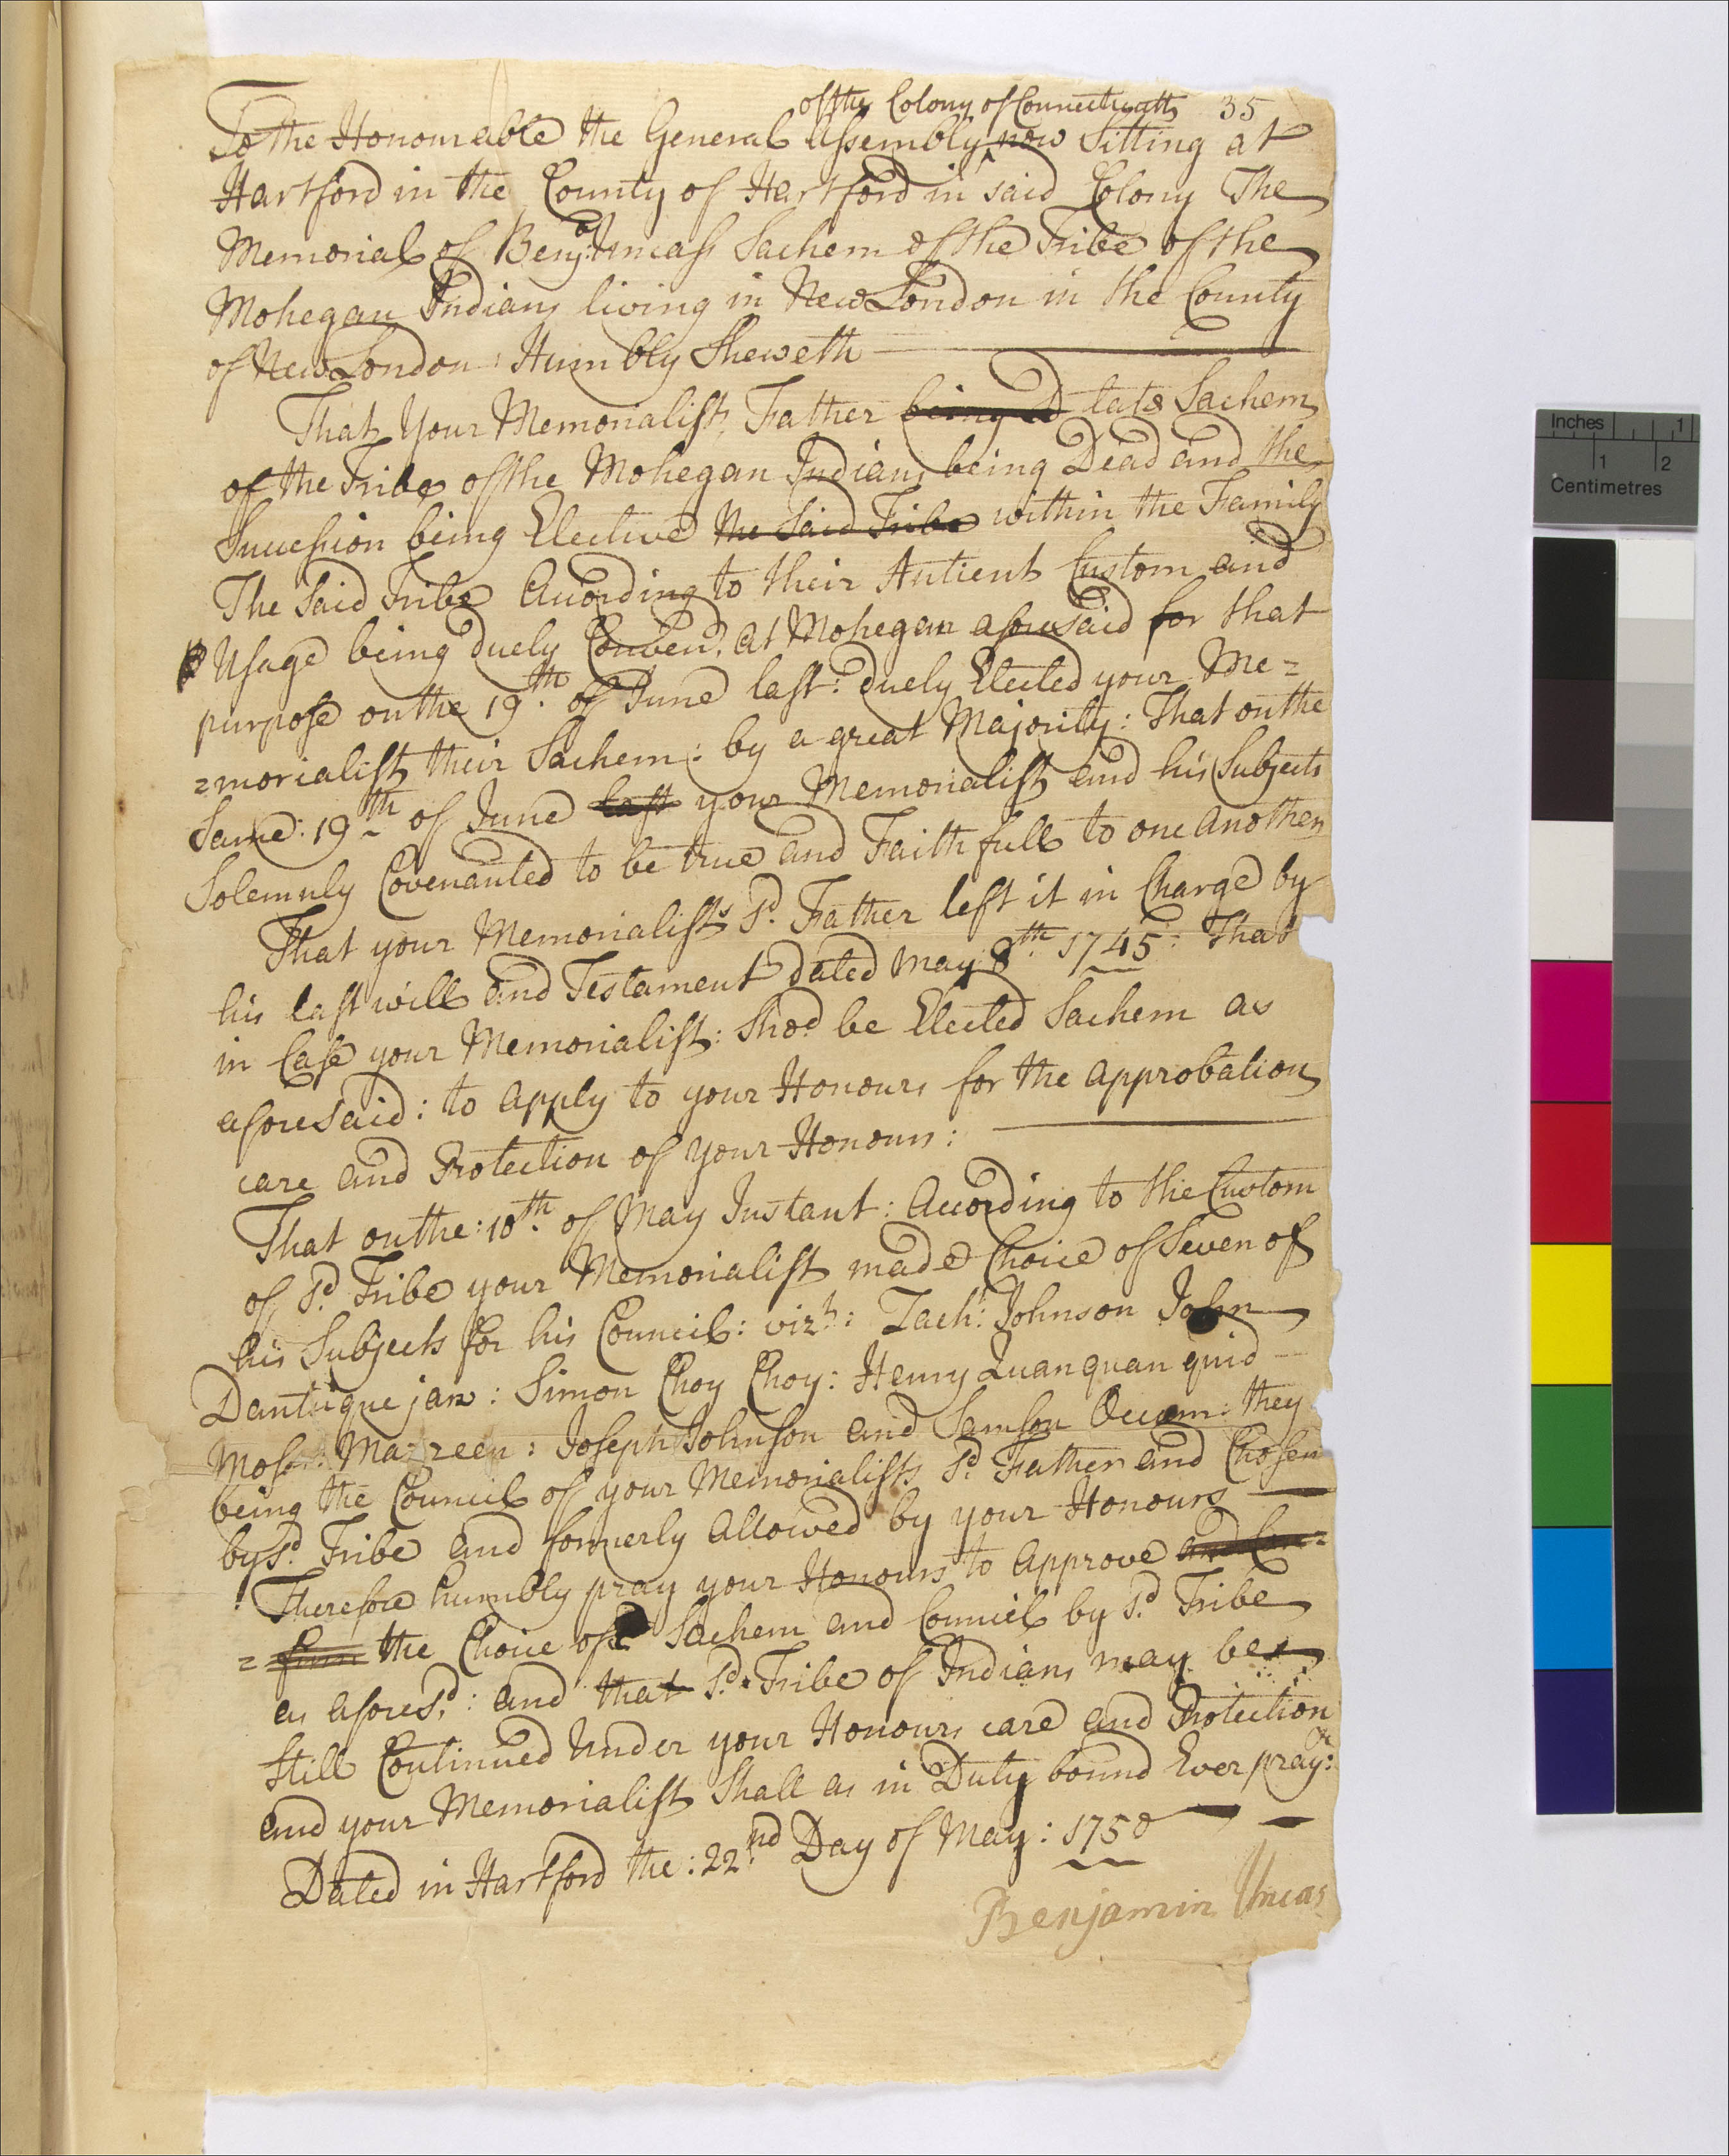 of the Colony of Connecticutt 35
To the Honourable the General Assembly ^ now Sitting at
Hartford in the County of Hartford in said Colony The
Memorial of Benj:a Uncass Sachem of the Tribe of the
Mohegan Indians living in New London in the County
of New London: Humbly Sheweth
That Your Memorialists Father being d late Sachem
of the Tribe of the Mohegan Indians being Dead and the
Succession being Elective the said Tribe within the Family
The Said Tribe Acording to their Antient Custom and
Usage being duely Conven'd at Mohegan aforesaid for that
purpose on the 19th of June last: duely Elected your Me=
=morialist their Sachem: by a great Majority: That on the
Same: 19th of June last your Memorialist and his Subjects
Solemnly Covenanted to be true and Faithfull to one another
That your Memorialists sd. Father left it in Charge by
his last will and Testament dated May 8th 1745: That
in Case your Memorialist: Shod be Elected Sachem as
aforesaid: to apply to your Honours for the approbation
care and Protection of your Honours:
That on the: 10th of May Instant: Acording to the Custom
of sd. Tribe your Memorialist made Choice of Seven of
his Subjects for his Council: vizt: Zach: Johnson John
Dantuquejan: Simon Choy Choy: Henry Quanquanquid
Moses: Mazzeen: Joseph Johnson and Samson Occom: they
being the Council of your Memorialists sd. Father and Chosen
by sd. Tribe and formerly allowed by your Honours
Therefore humbly pray your Honours to approve and Con=
=firm the Choice of Sachem and Council by sd. Tribe
as aforesd.: and that sd. Tribe of Indians may be
Still Continued Under your Honours care and Protection
and your Memorialist Shall as in Duty bound Ever pray: &c
Dated in Hartford the: 22nd Day of May: 1750
Benjamin Uncas
Inches 1
1 2
Centimetres